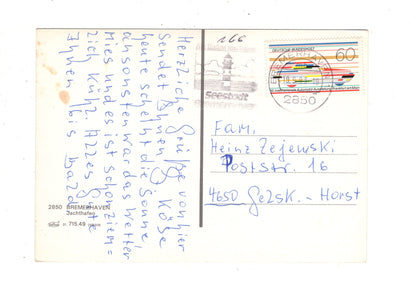 Herzliche Grüße von hier
sendet Ihnen G. Köße
heute scheint die Sonne,
ansonsten war das Wetter
Mies und es ist schon ziem=
lich kühl. Alles Gute
Ihnen bis bald
2850 BREMERHAVEN
Jachthafen
715.49
166
Seestadt
BREMERHAVEN
2850
DEUTSCHE BUNDESPOST
60
Fam.
Heinz Zejewski
Poststr. 16
4650 Gelsk. - Horst